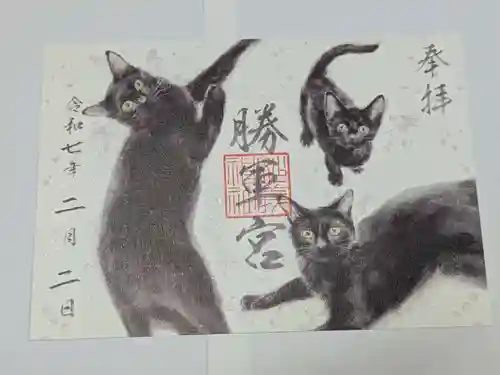 奉拝
勝軍宮
令和七年
二月
二日